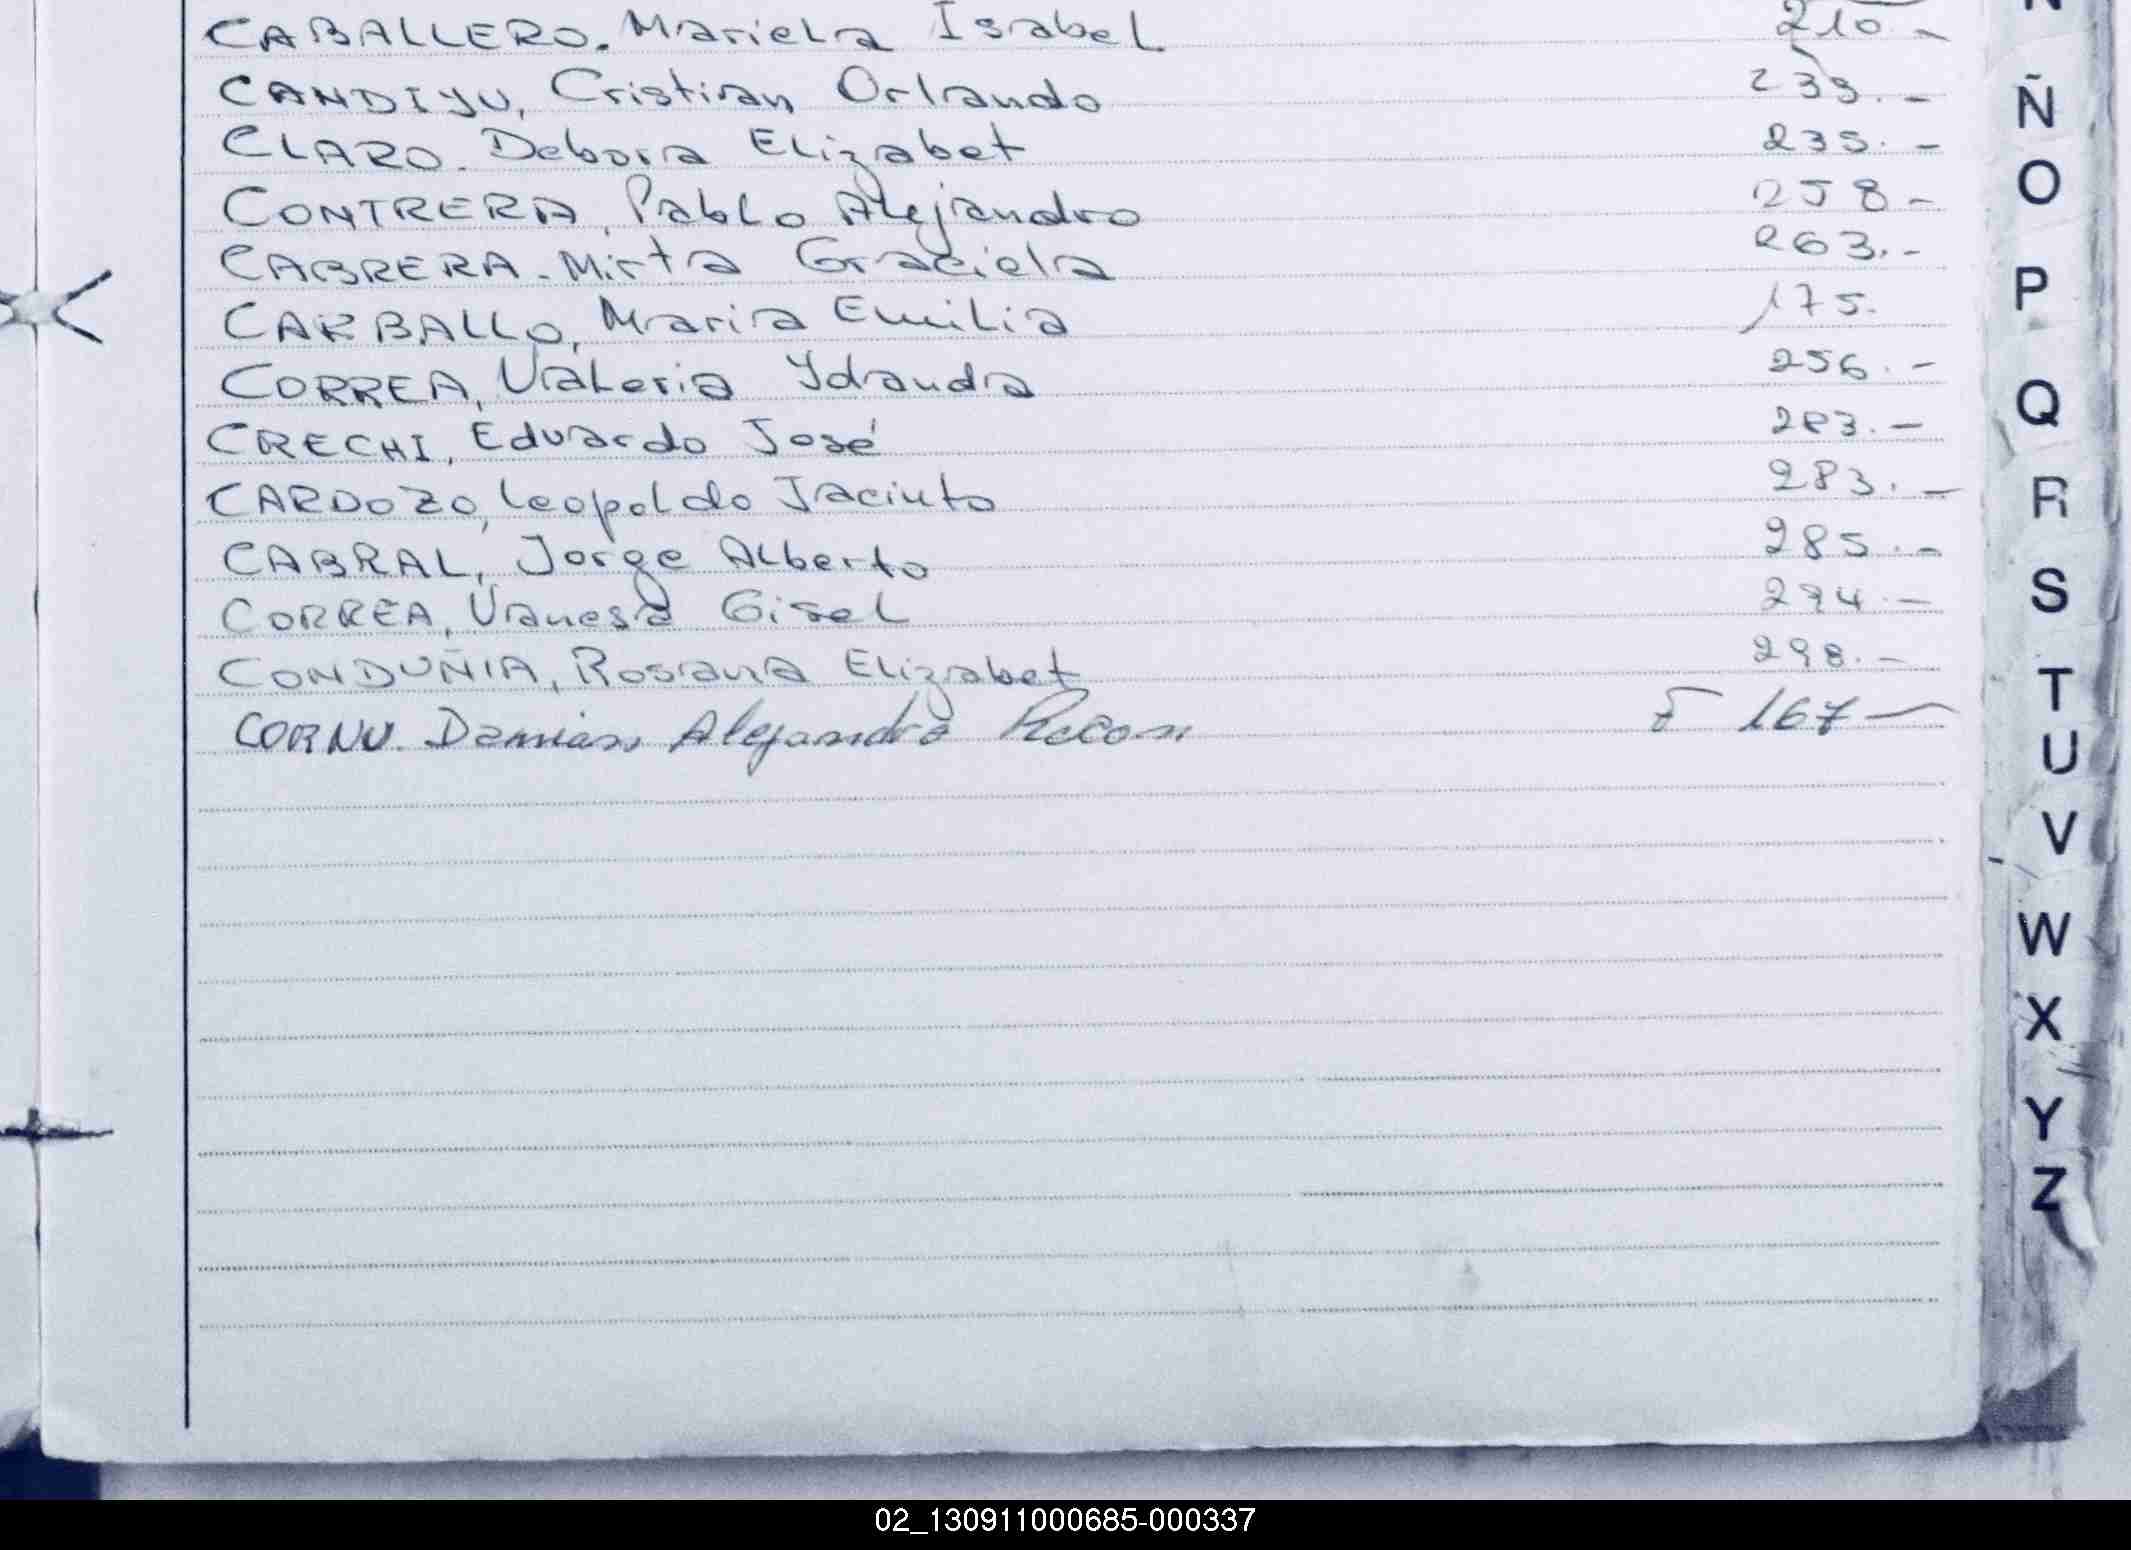 CABALLERO. Mariela Isabel 210.-
CANDIYU, Cristian Orlando 239.-
CLARO. Debora Elizabet 235.-
CONTRERA, Pablo Alejandro 258-
CABRERA. Mirta Graciela 263.-
CARBALLO, Maria Emilia 175.
CORREA, Valeria Ydauda 256.-
CRECHI, Eduardo José 283.-
CARDOZO, Leopoldo Jacinto 283.-
CABRAL, Jorge Alberto 285.-
CORREA, Vanesa Gisel 294.-
CONDUÑIA, Rosana Elizabet 298.-
CORNU. Damian Alejandro F 167-
N
Ñ
O
P
Q
R
S
T
U
V
W
X
Y
Z
02_130911000685-000337